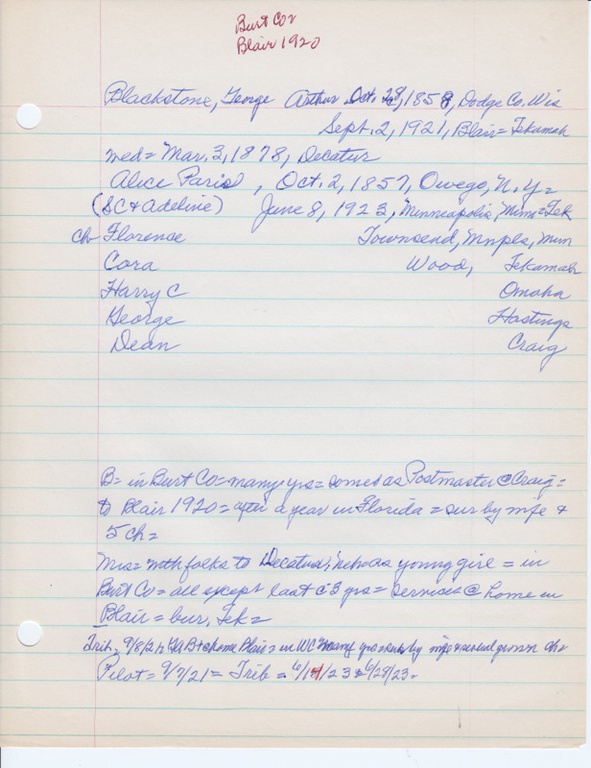 Burt Co
Blair 1920
Blackstone, George Arthur Oct. 28, 1858, Dodge Co. Wis
Sept. 2, 1921, Blair = Tekamah
med = Mar. 3, 1878, Decatur
Alice Paris, Oct. 2, 1857, Owego, N.Y. =
(SC & Adeline) June 8, 1923, Minneapolis, Minn = Tek
ch Florence Townsend, Mnpls, Minn
Cora Wood, Tekamah
Harry C Omaha
George Hastings
Dean Craig
B = in Burt Co = many yrs = some as Postmaster @ Craig =
to Blair 1920 = after a year in Florida = sur by wife &
5 ch =
Mrs = with folks to Decatur, Neb as young girl = in
Burt Co = all except last 3 yrs = services @ home in
Blair = bur, Tek =
Trib = 9/8/21 = home Blair = in WC many yrs = sur by wife & several grown ch
Pilot = 9/7/21 = Trib = 6/14/23 & 6/28/23.